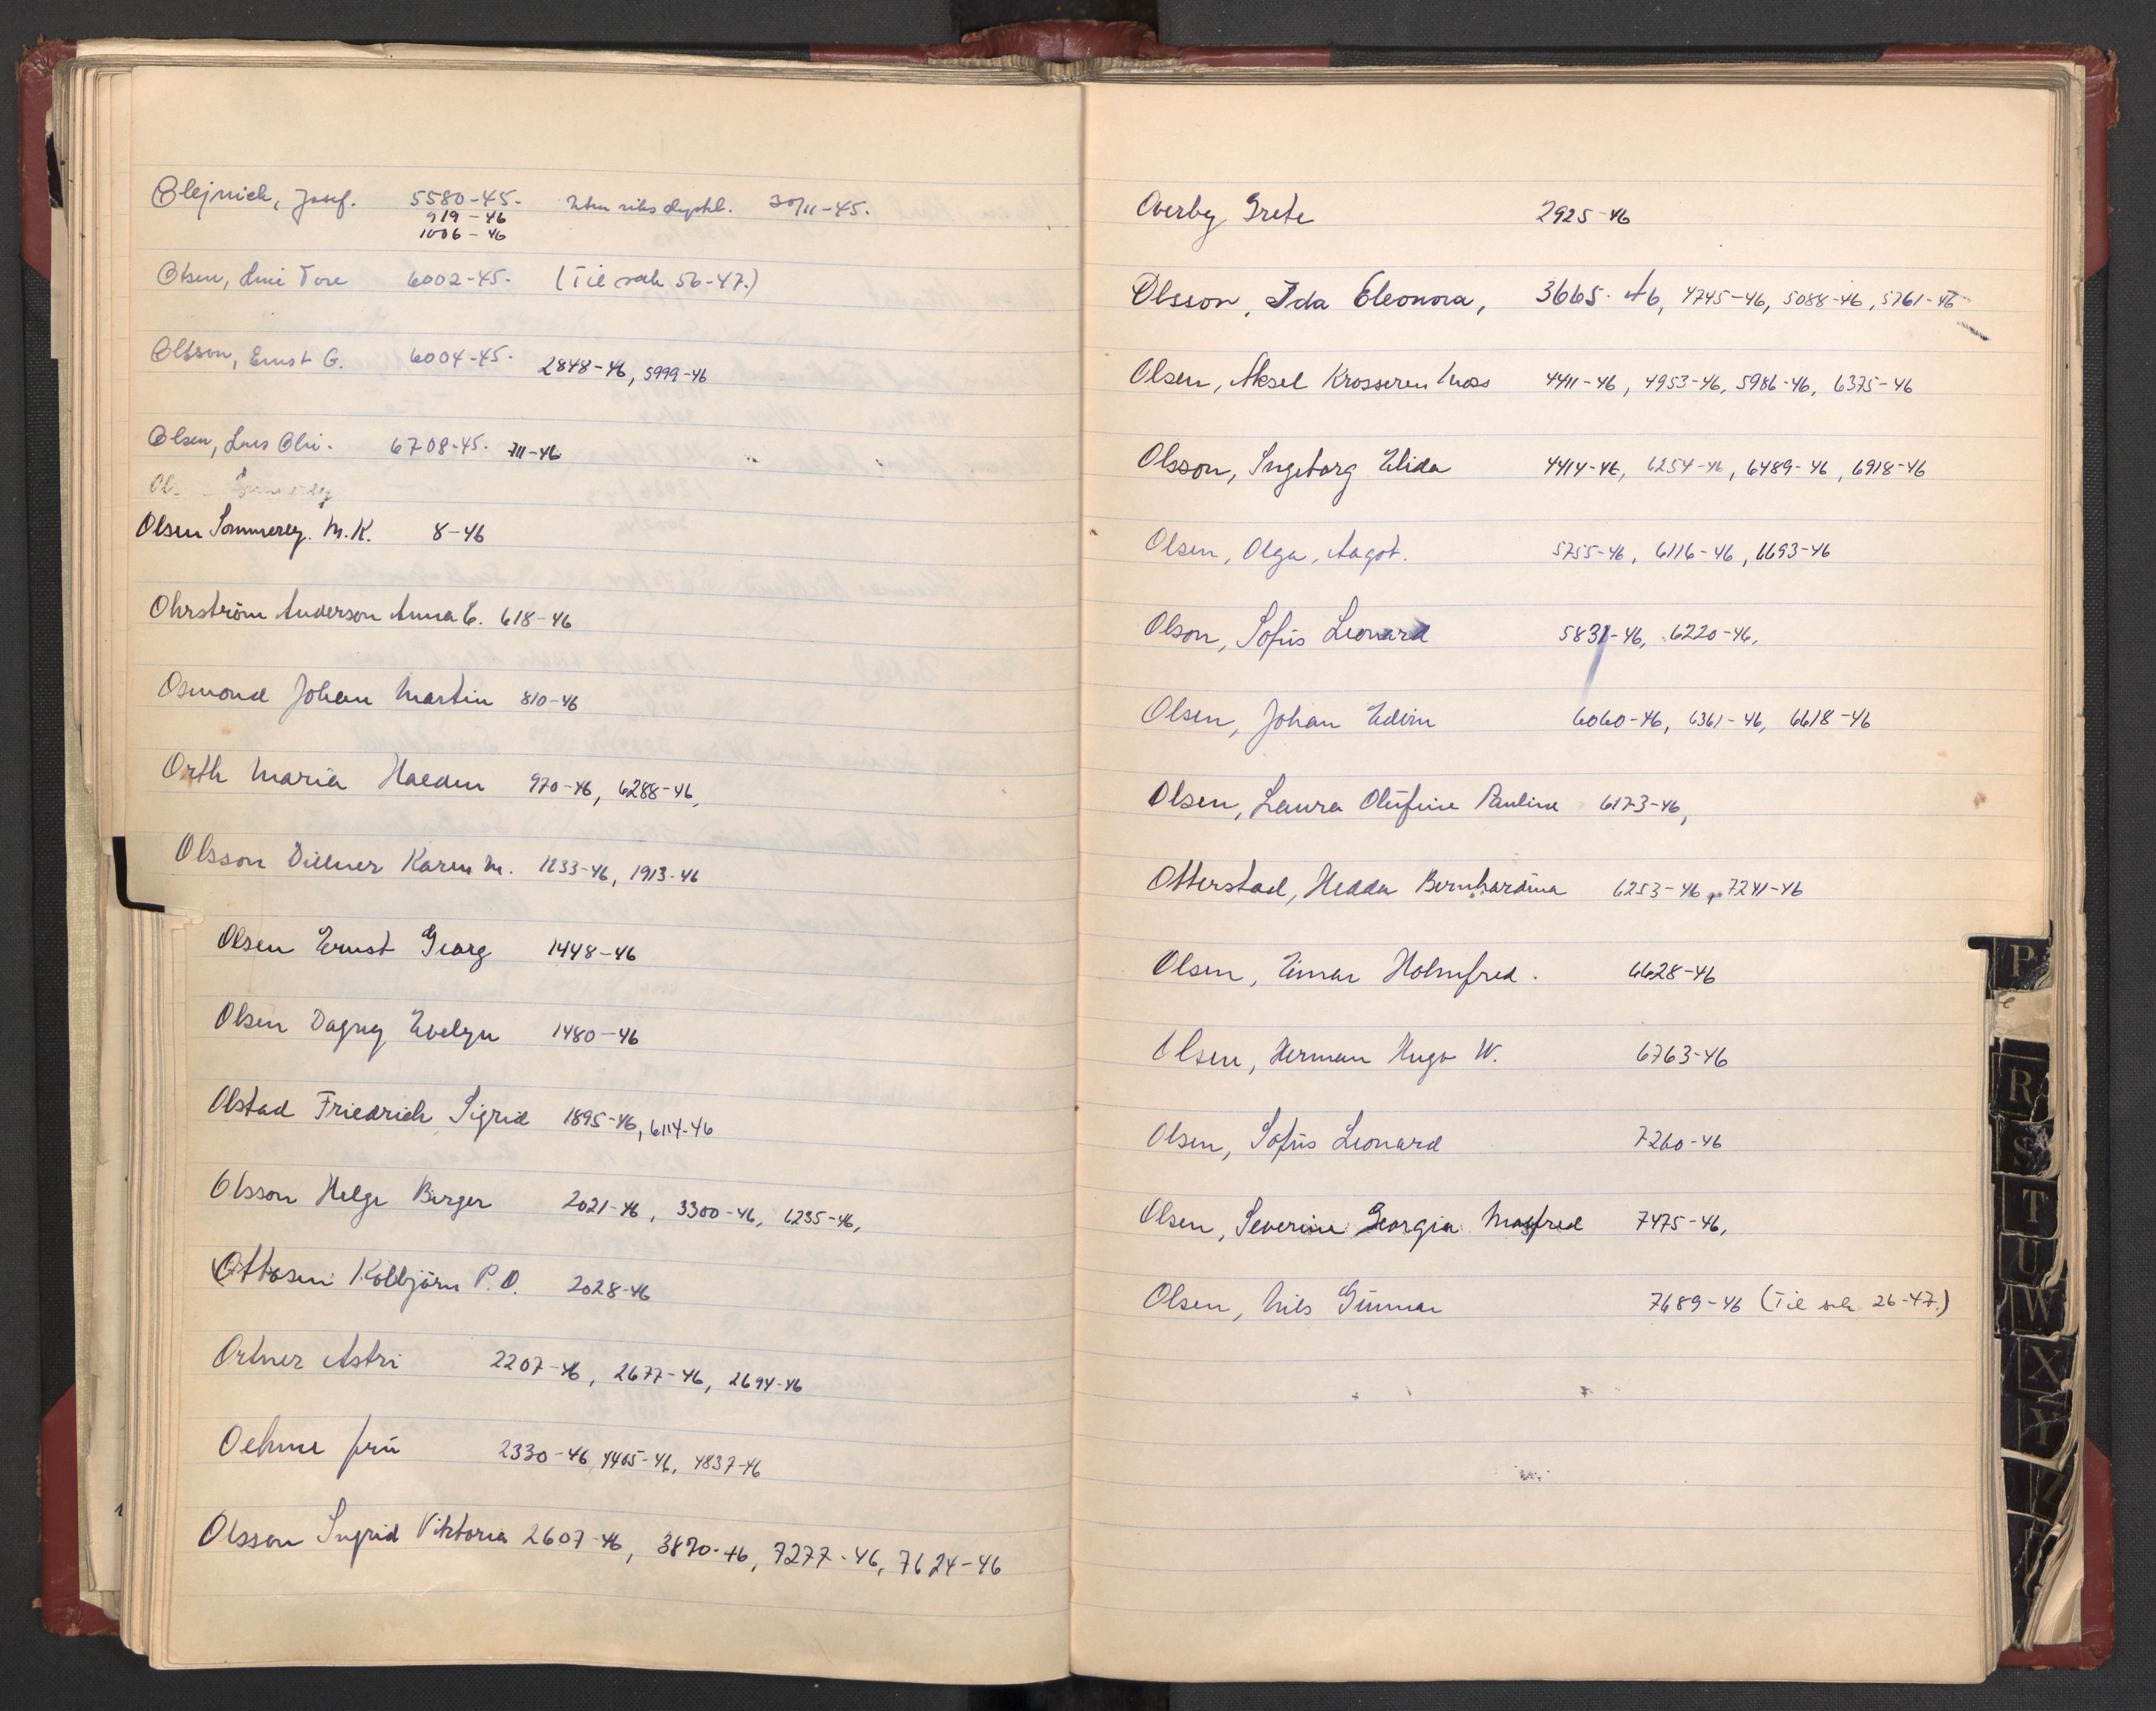 Olejnich, Josef. 5580-45. 30/11-45.
919-46
1006-46
Olsen, Tore 6002-45. (Til sak 56-47.)
Olsson, Ernst G. 6004-45. 2848-46, 5999-46
Olsen, Lars 6708-45. 711-46
Olsen Sommerey. M.K. 8-46
Ohrström Anderson Anna E. 618-46
Osmond Johan Martin 810-46
Orth Maria 970-46, 6288-46,
Olsson Dillner Karen M. 1233-46, 1913-46
Olsen Ernst Georg 1448-46
Olsen Dagny Evelyn 1480-46
Olstad Friedrich Sigrid 1895-46, 6114-46
Olsson Helge Birger 2021-46, 3300-46, 6235-46,
Ottosen Kolbjörn P.O. 2028-46
Ortner Astri 2207-46, 2677-46, 2694-46
Oehme frū 2330-46, 4465-46, 4837-46
Olsson Ingrid Viktoria 2607-46, 3870-46, 7277-46, 7624-46
Overby Grete 2925-46
Olsson, Ida Eleonora, 3665-46, 4745-46, 5088-46, 5761-46
Olsen, Aksel 4411-46, 4953-46, 5986-46, 6375-46
Olsson, Ingeborg Elida 4414-46, 6254-46, 6489-46, 6918-46
Olsen, Olga, Aagot. 5755-46, 6116-46, 6693-46
Olson, Sofūs Leonard 5831-46, 6220-46,
Olsen, Johan Edvin 6060-46, 6361-46, 6618-46
Olsen, Laura Olūfine Pauline 6173-46,
Otterstad, Hedda Bernhardina 6253-46, 7241-46
Olsen, Einar Holmfred. 6628-46
Olsen, Herman Hugo W. 6763-46
Olsen, Sofūs Leonard 7260-46
Olsen, Severine Georgia 7475-46,
Olsen, Nils Gūnnar 7689-46 (Til sak 26-47.)
P
R
S
T
U
W
X
Y
Z